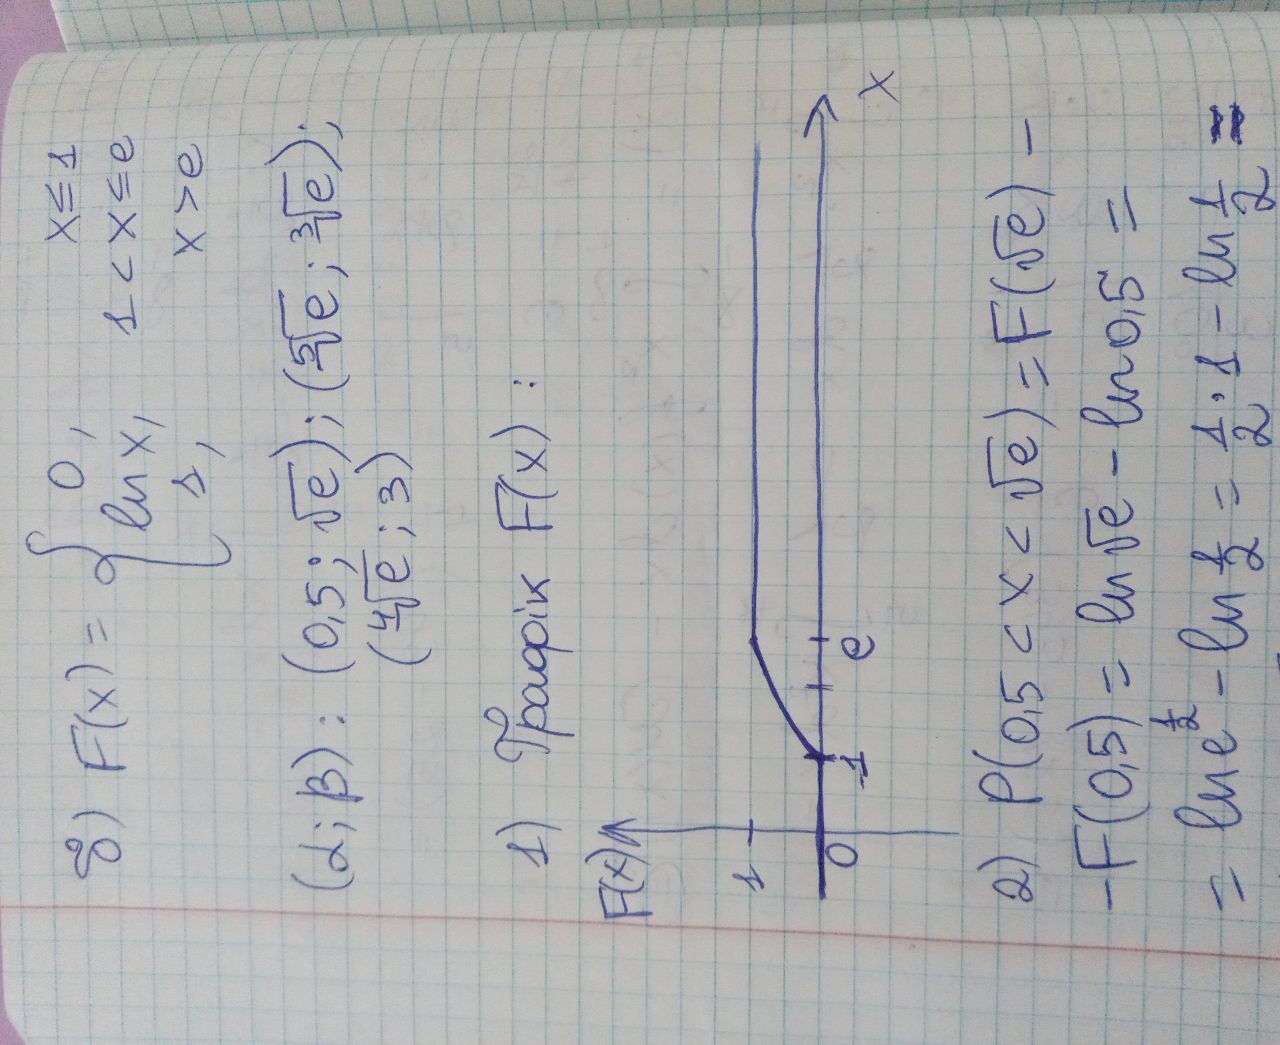 б) F(x) = { 0, x ≤ 1
ln x, 1 < x ≤ e
1, x > e
(α; β) : (0,5; √e); (⁵√e; ³√e);
(⁴√e; 3)
1) Графік F(x) :
F(x)
1
0 1 e
x
2) P(0,5 < x < √e) = F(√e) –
– F(0,5) = ln √e – ln 0,5 =
= ln e^(1/2) – ln 1/2 = 1/2 · 1 – ln 1/2 =